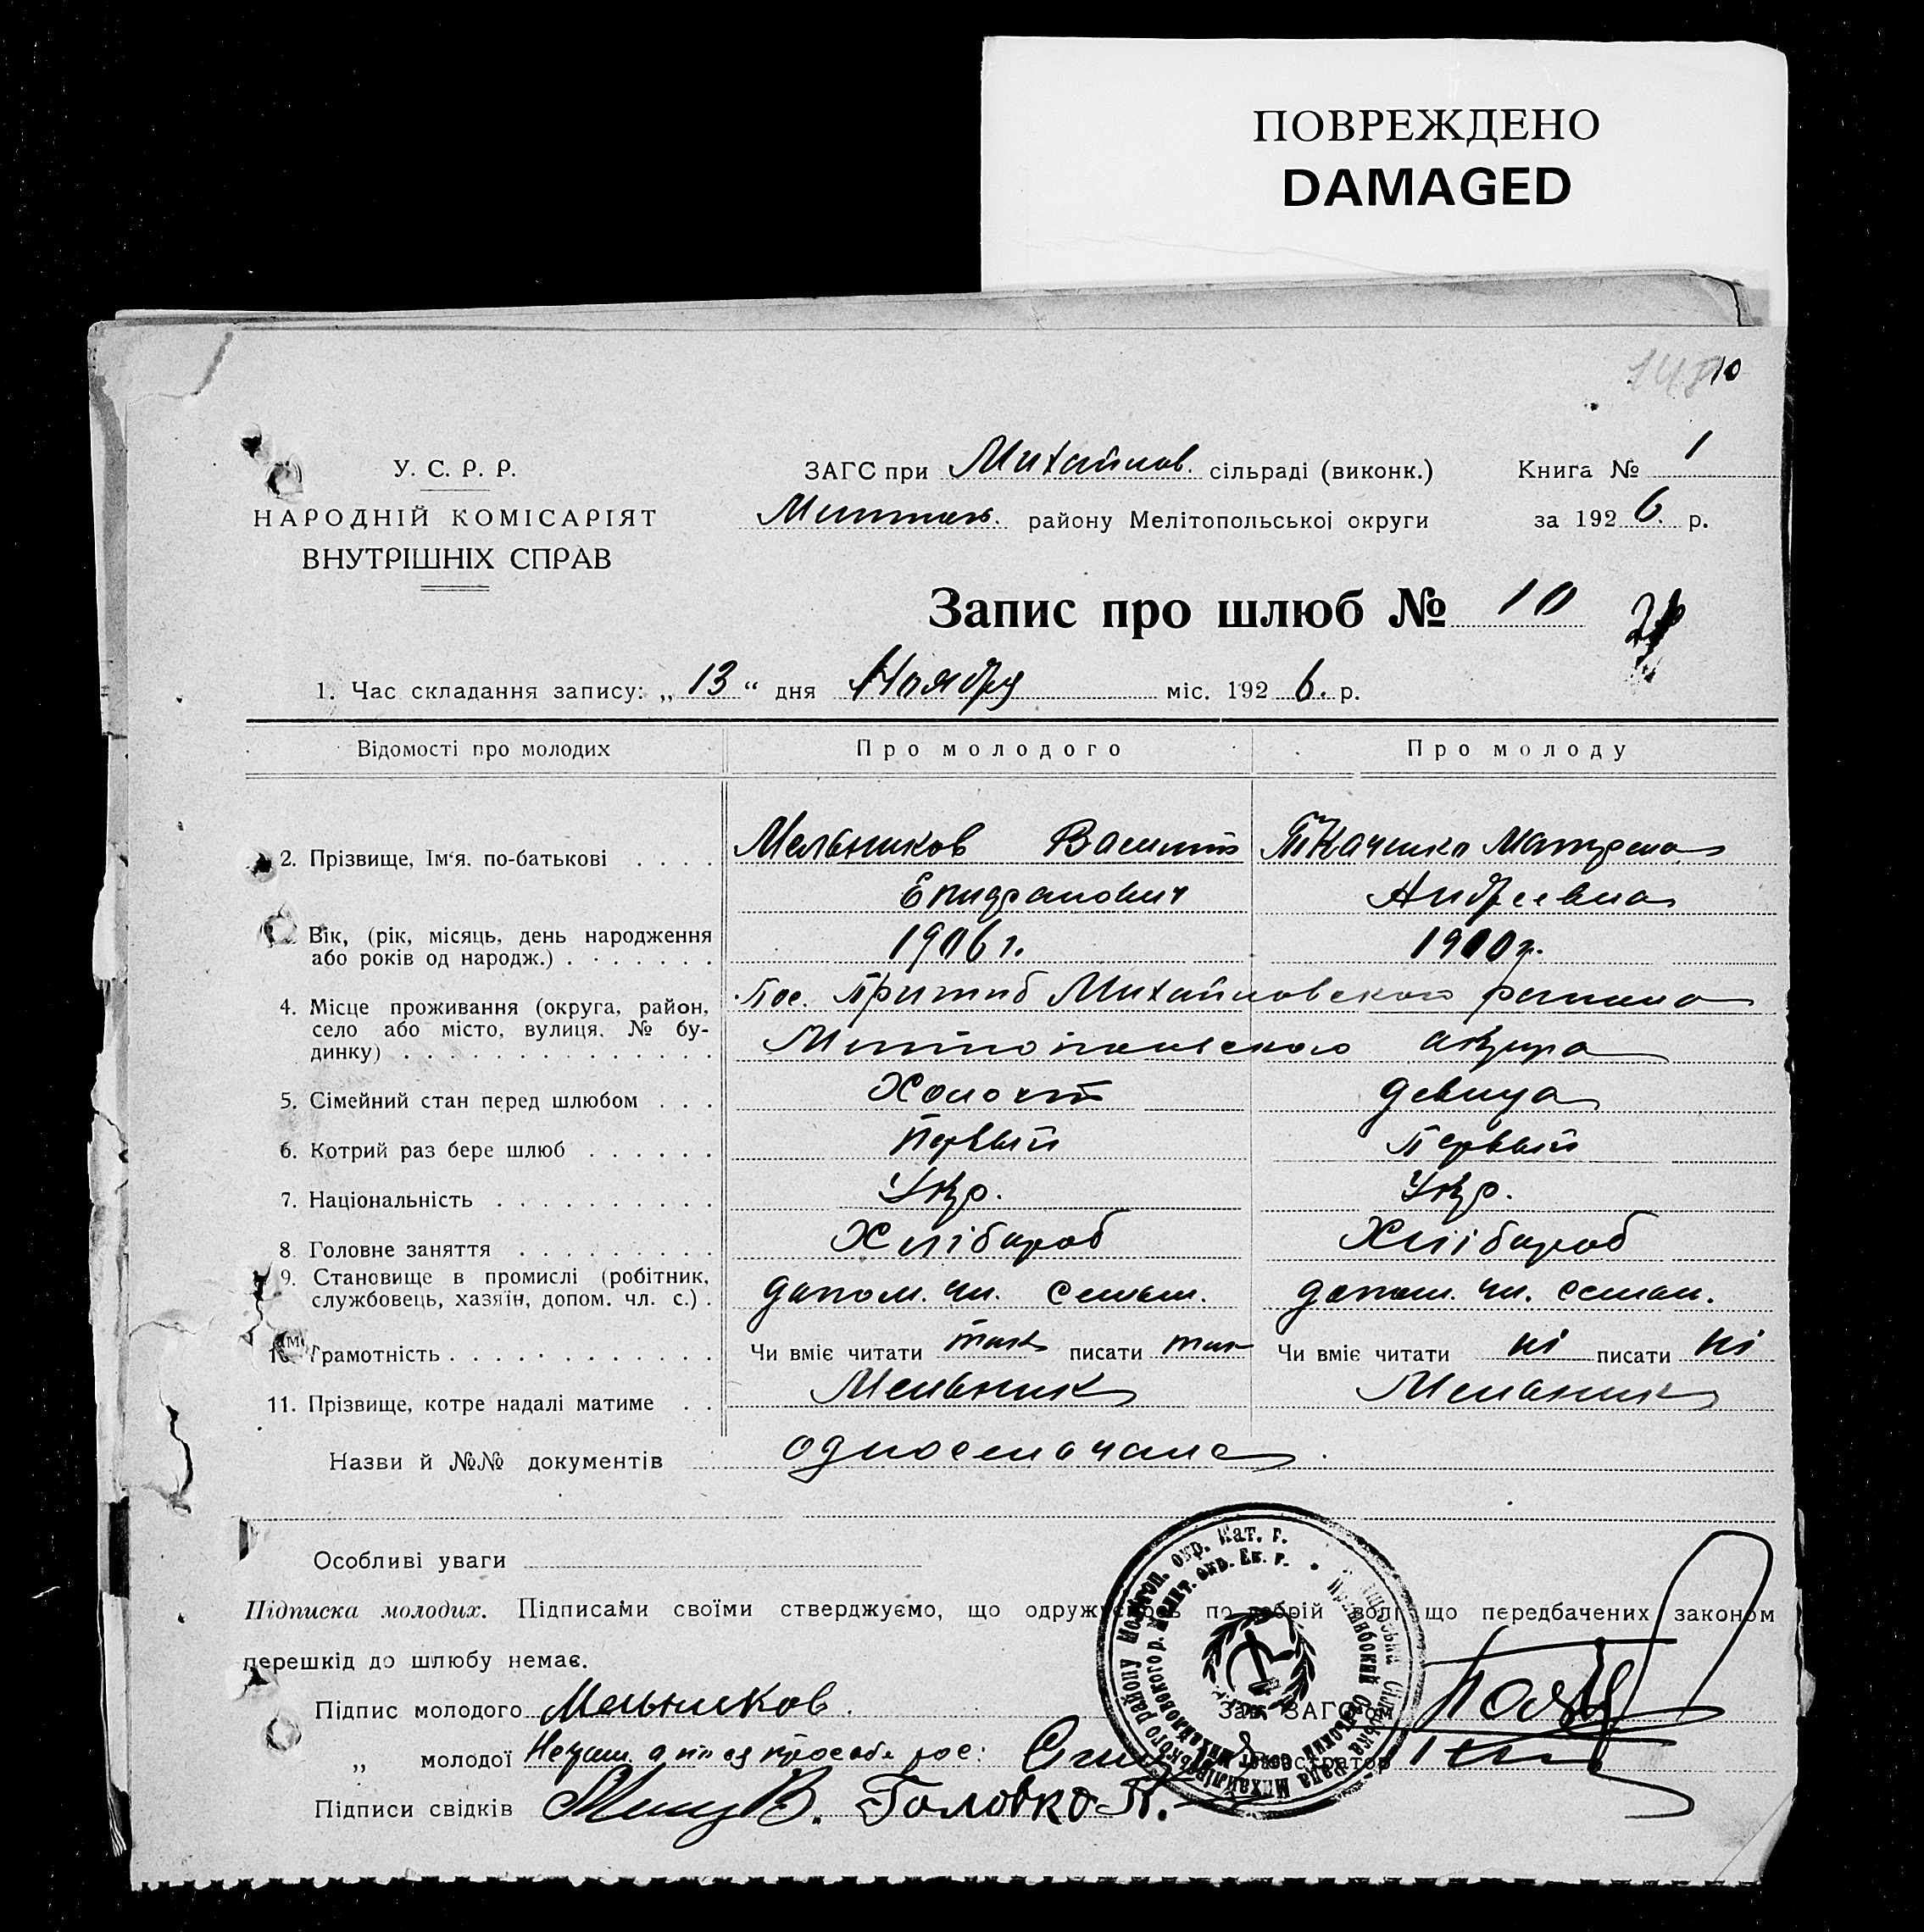 ПОВРЕЖДЕНО
DAMAGED
10
У. С. Р. Р.
НАРОДНІЙ КОМІСАРІЯТ
ВНУТРІШНІХ СПРАВ
ЗАГС при Михайлов. сільраді (виконк.) Книга № 1
району Мелітопольськоі округи за 1926. р.
Запис про шлюб № 10
1. Час складання запису: „13“ дня Ноября міс. 1926. р.
Відомості про молодих Про молодого Про молоду
2. Прізвище, Ім'я. по-батькові . . . . Мельников Василий Ткаченко Матрена
Епифанович Андреевна
Вік, (рік, місяць, день народження
або років од народж.) . . . . . . . 1906 г. 1900 г.
4. Місце проживання (округа, район,
село або місто, вулиця. № бу-
динку) . . . . . . . . . . . . . .
Пос. Михайловского района
Мелитопольского округа
5. Сімейний стан перед шлюбом . . . Холост девица
6. Котрий раз бере шлюб . . . . . . Первый Первый
7. Національність . . . . . . . . . . Укр. Укр.
8. Головне заняття . . . . . . . . . Хлібороб Хлібороб
9. Становище в промислі (робітник,
службовець, хазяїн, допом. чл. с.) . допом. чл. семьи. допом. чл. семьи.
10. Грамотність . . . . . . . . . . . . Чи вміє читати так писати так Чи вміє читати ні писати ні
11. Прізвище, котре надалі матиме . . Мельник Мельник
Назви й №№ документів односельчане
Особливі уваги
Підписка молодих. Підписами своїми стверджуємо, що одружуємось по добрій волі що передбачених законом
перешкід до шлюбу немає.
Підпис молодого Мельников.
Зав. ЗАГС'ом
„ молодої
Реєстратор
Підписи свідків Головко